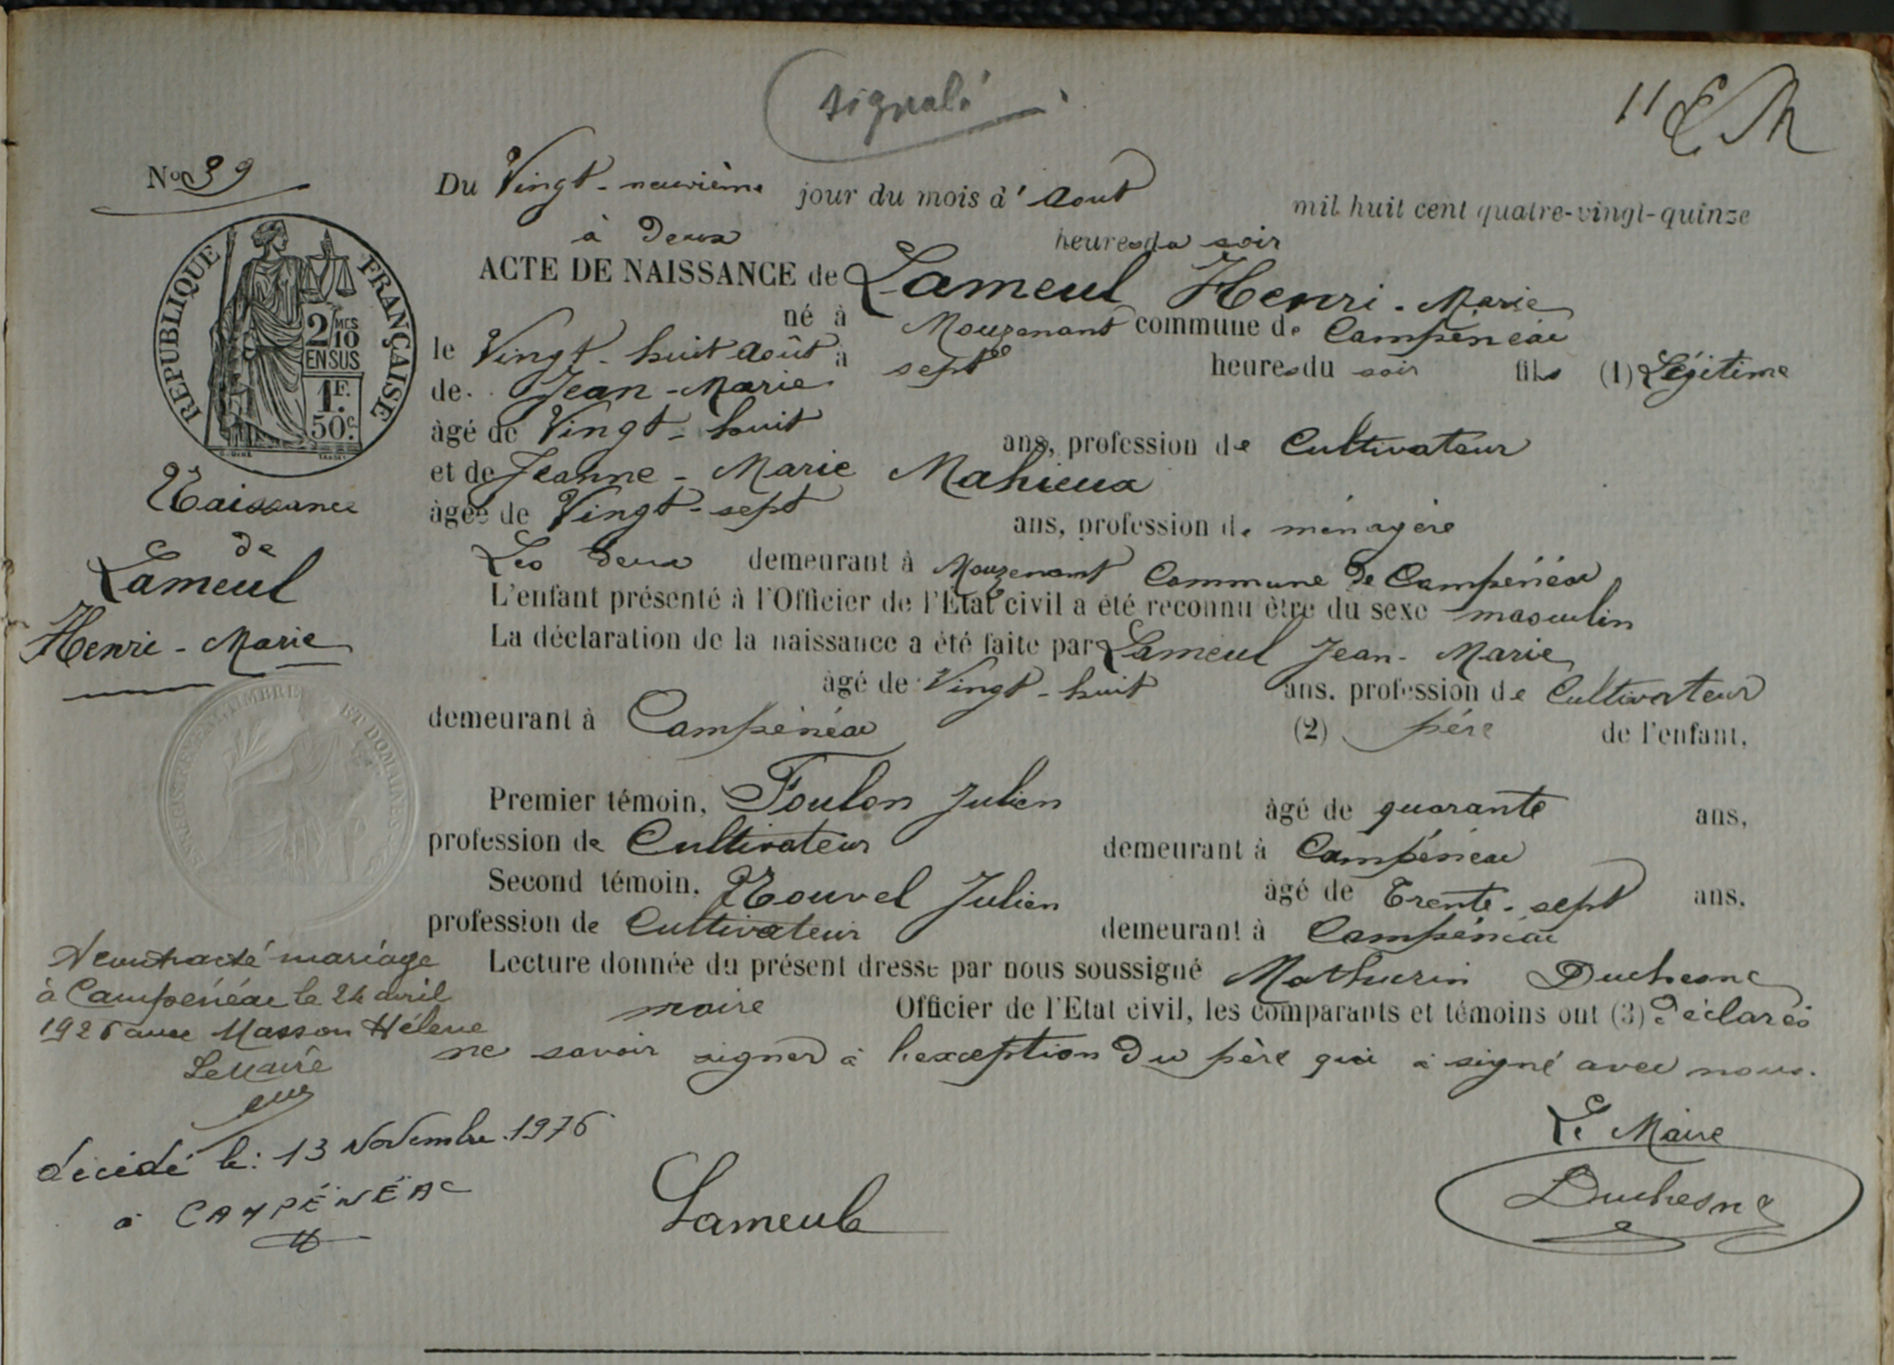 signalé
11
No 39
Du Vingt-neuvième jour du mois d'Aout mil huit cent quatre-vingt-quinze
à Deux heures du soir
ACTE DE NAISSANCE de Lameul Henri-Marie
né à Mouzenant commune de Campénéac
le Vingt-huit Août à sept heures du soir fils (1) Légitime
de Jean-Marie
âgé de Vingt-huit ans, profession de Cultivateur
et de Jeanne-Marie Mahieux
âgée de Vingt-sept ans, profession de ménagère
Les deux demeurant à Mouzenant Commune de Campénéac
L'enfant présenté à l'Officier de l'Etat civil a été reconnu être du sexe masculin
La déclaration de la naissance a été faite par Lameul Jean-Marie
âgé de Vingt-huit ans, profession de Cultivateur
demeurant à Campénéac (2) père de l'enfant,
Premier témoin, Foulon Julien âgé de quarante ans,
profession de Cultivateur demeurant à Campénéac
Second témoin, Nouvel Julien âgé de Trente-sept ans,
profession de Cultivateur demeurant à Campénéac
Lecture donnée du présent dressé par nous soussigné Mathurin Duchesne
maire Officier de l'Etat civil, les comparants et témoins ont (3) déclarés
ne savoir signer à l'exception du père qui a signé avec nous.
Le Maire
Lameule
Duchesne
REPUBLIQUE FRANÇAISE
2/10MES
EN SUS
1F.
50c.
Naissance
de
Lameul
Henri-Marie
ENREGISTREMENT TIMBRE ET DOMAINES
A contracté mariage
à Campénéac le 24 avril
1926 avec Masson Hélène
Le Maire
décédé le: 13 Novembre 1976
à CAMPÉNÉAC